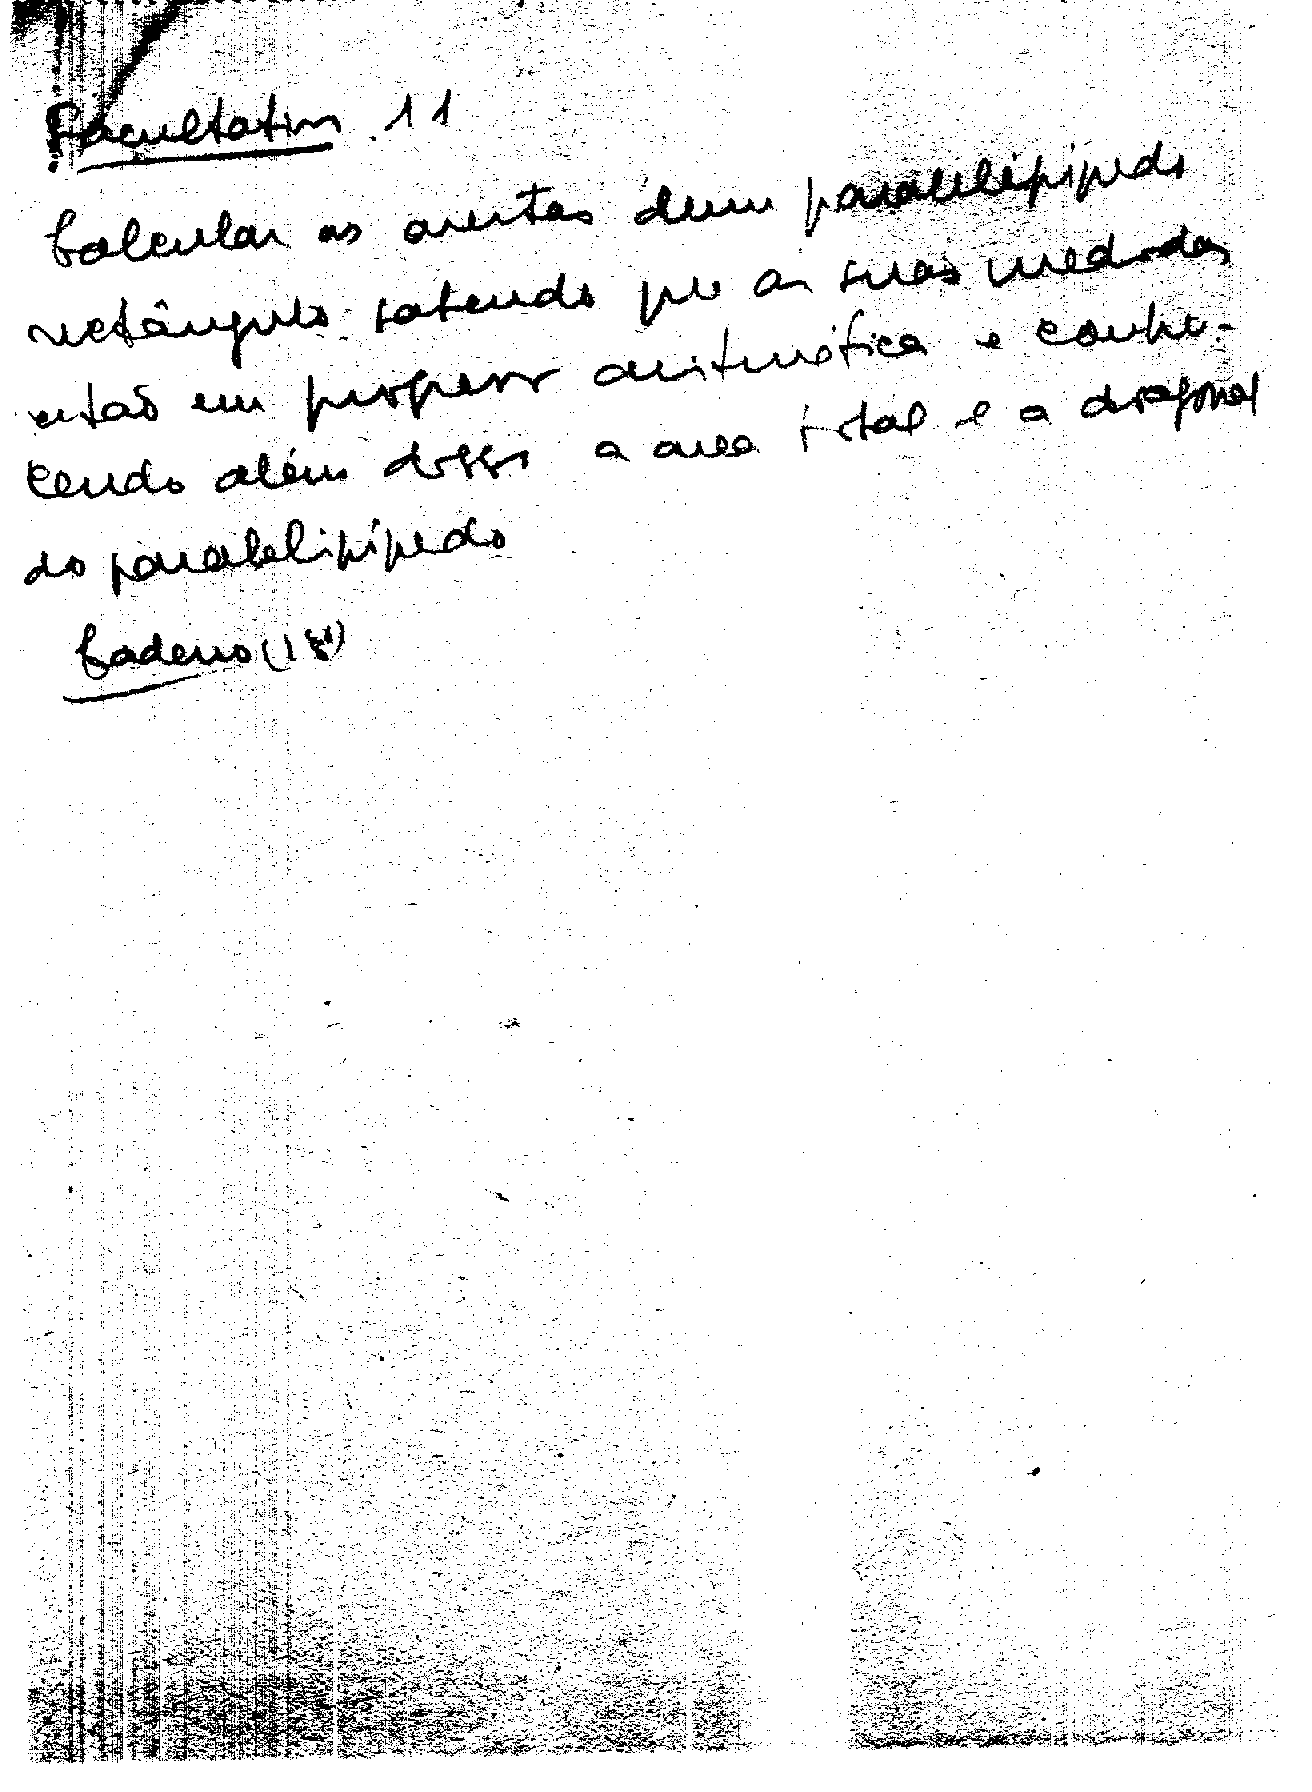 Facultativo 11
Calcular as arestas dum paralelipípedo
rectângulo sabendo que as suas medidas
estão em progressão aritmética e conhe-
cendo além disso a area total e a diagonal
do paralelipípedo
Caderno (18)